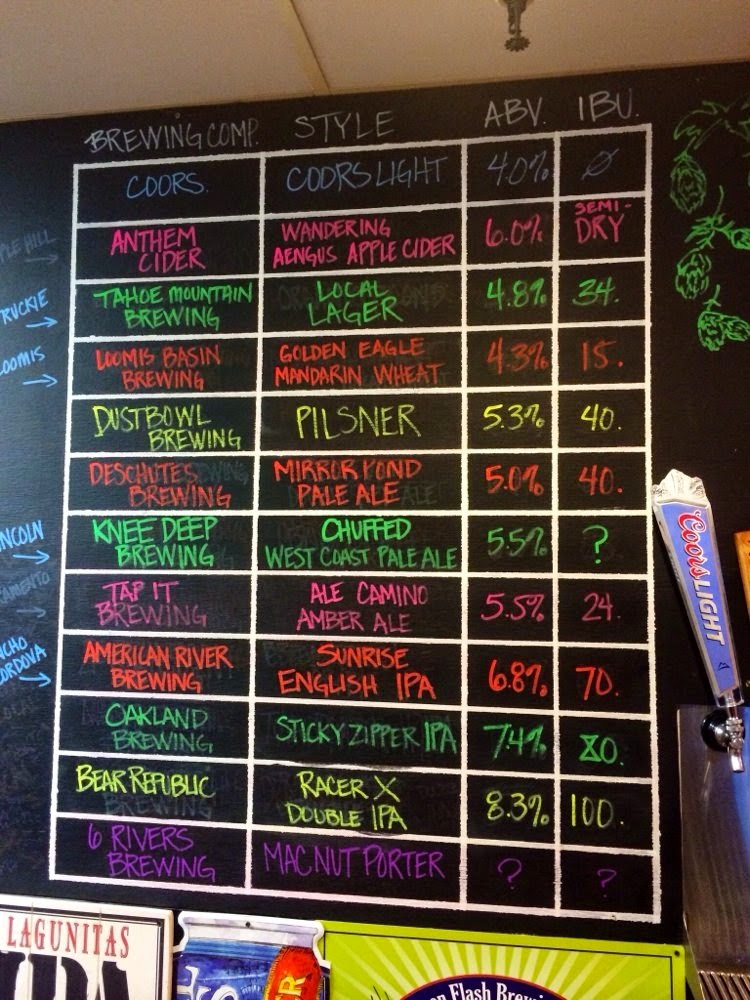 BREWING COMP. STYLE ABV. IBU.
COORS. COORS LIGHT 4.0% Ø
ANTHEM CIDER WANDERING AENGUS APPLE CIDER 6.0% SEMI-DRY
TAHOE MOUNTAIN BREWING LOCAL LAGER 4.8% 34.
LOOMIS BASIN BREWING GOLDEN EAGLE MANDARIN WHEAT 4.3% 15.
DUSTBOWL BREWING PILSNER 5.3% 40.
DESCHUTES BREWING MIRROR POND PALE ALE 5.0% 40.
KNEE DEEP BREWING CHUFFED WEST COAST PALE ALE 5.5% ?
TAP IT BREWING ALE CAMINO AMBER ALE 5.5% 24.
AMERICAN RIVER BREWING SUNRISE ENGLISH IPA 6.8% 70.
OAKLAND BREWING STICKY ZIPPER IPA 7.4% 80.
BEAR REPUBLIC BREWING RACER X DOUBLE IPA 8.3% 100.
6 RIVERS BREWING MAC NUT PORTER ? ?
PLE HILL
RUCKIE
OOMIS
NCOLN
AMENTO
NCHO
CORDOVA
Coors LIGHT
LAGUNITAS
IPA
ER
en Flash Brewi